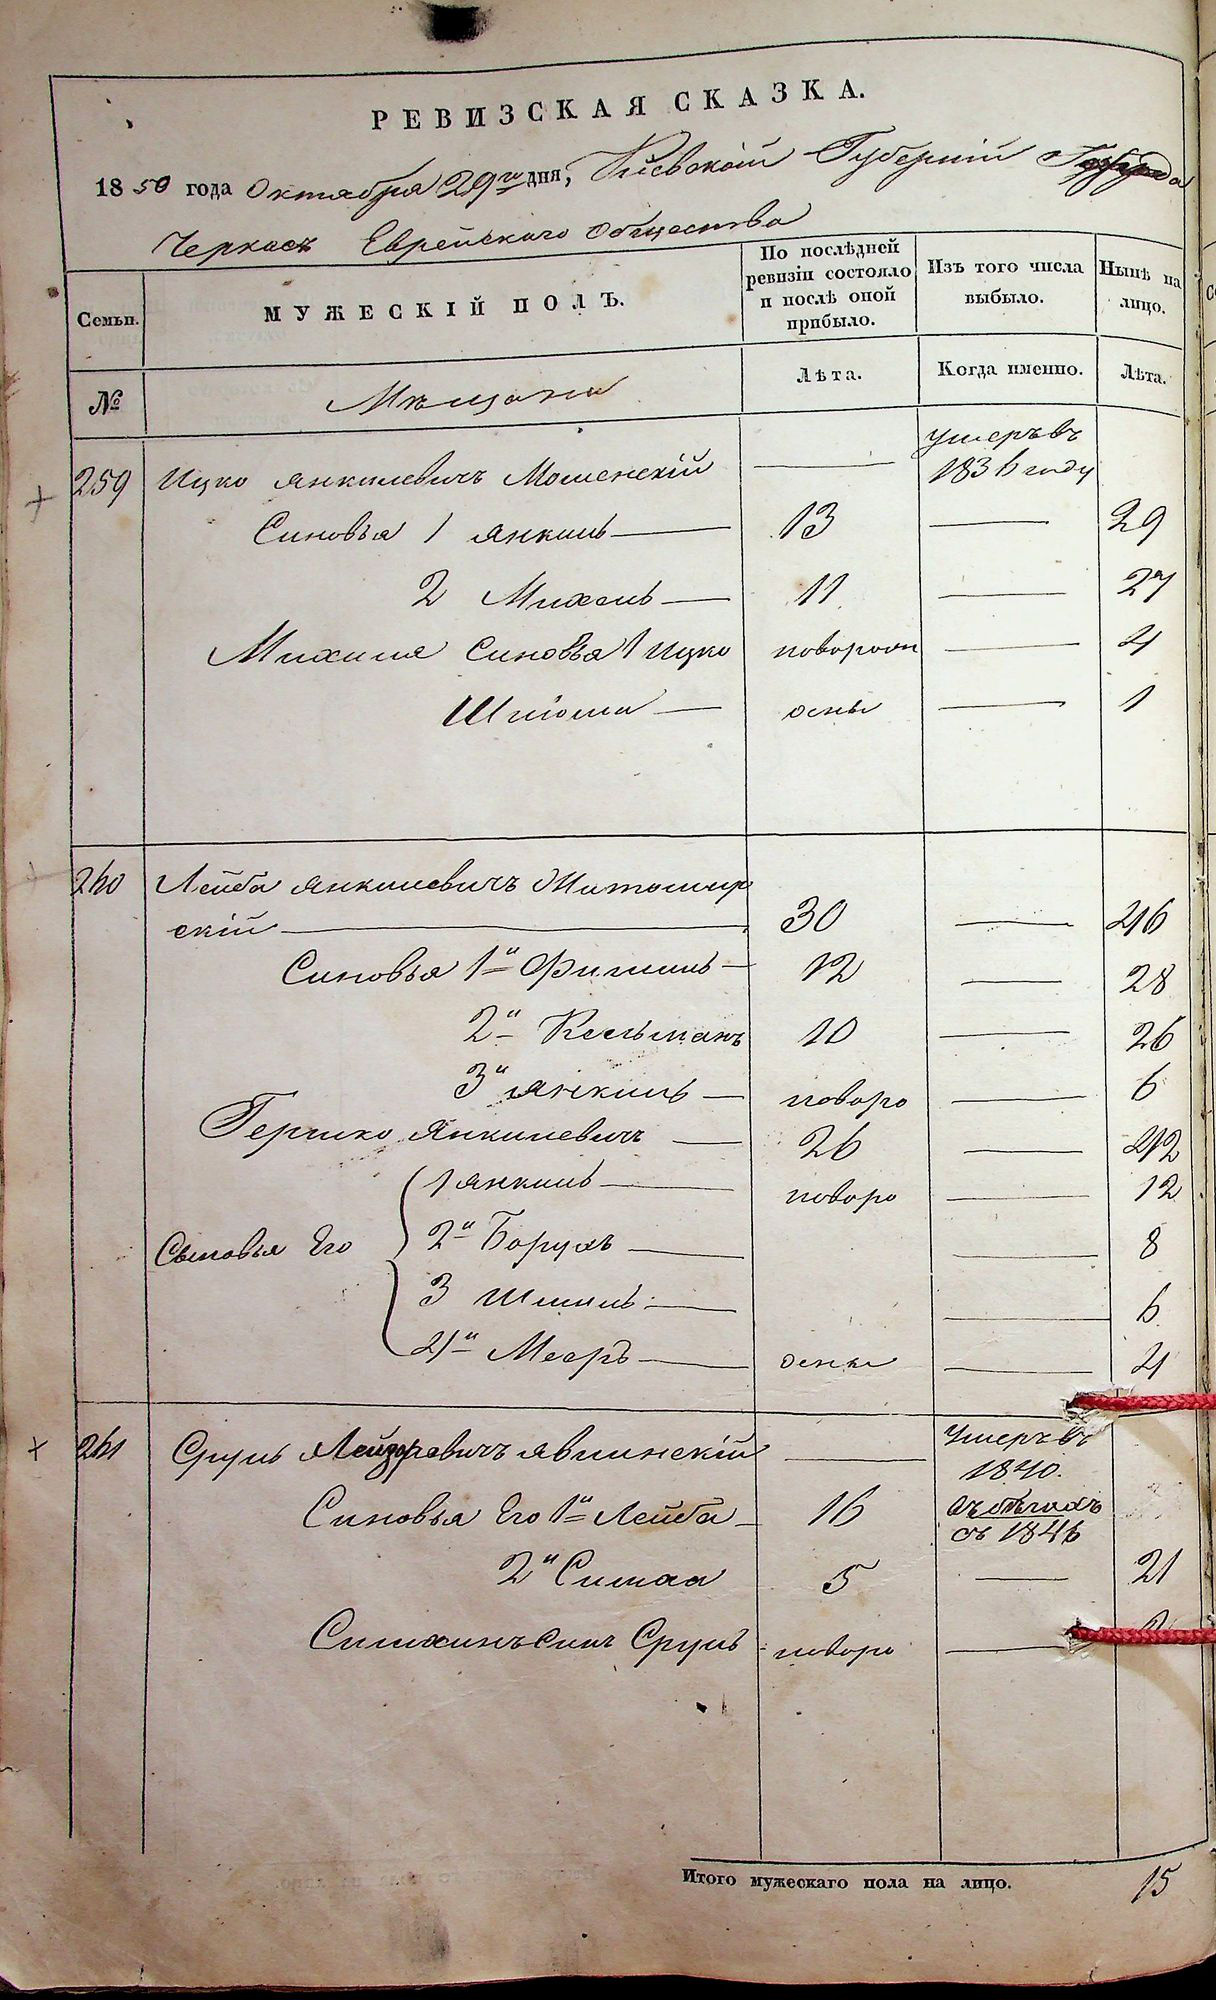 РЕВИЗСКАЯ СКАЗКА.
1850 года Октября 29го дня, Кіевской Губерніи Города
Черкасъ Еврейскаго Общества
Семьи.
МУЖЕСКІЙ ПОЛЪ.
По послѣдней ревизіи состояло и послѣ оной прибыло.
Изъ того числа выбыло.
Нынѣ на лицо.
№
Мѣщане
Лѣта.
Когда именно.
Лѣта.
259 Ицко Янкилевичъ Мошенскій — умеръ въ 1836 году
Синовья 1 Янкиль — 13 — 29
2 Михель — 11 — 27
Михиля Синовья 1 Ицко новорож — 4
Шліома — дены — 1
260 Лейба Янкилевичъ Житомир
скій — 30 — 46
Синовья 1й Фишиль — 12 — 28
2й Кельманъ 10 — 26
3й Янкиль — новоро — 6
Гершко Янкилевичъ — 26 — 42
1 Янкиль — новоро — 12
Сыновья Его 2й Борухъ — 8
3 Шмиль — 6
4й Мееръ — дены — 4
261 Сруль Лейзоревичъ Явлинскій — Умеръ въ
1840.
Синовья Его 1й Лейба — 16 въ бѣгахъ
съ 1846
2й Симха 5 — 21
Симхинъ Синъ Сруль новоро —
Итого мужескаго пола на лицо. 15